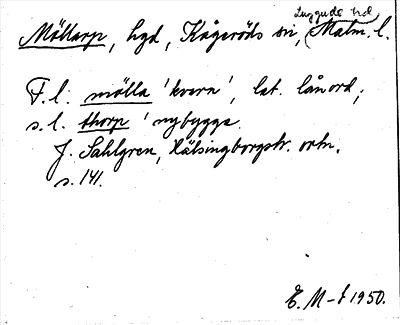 Luggude hd
Möllarp, hgd, Kågeröds sn, Malm. l.
F.l. mölla 'kvarn', lat. lånord;
s.l. thorp 'nybygge.
J. Sahlgren, Hälsingborgstr. ortn.
s. 141.
E. M-t 1950.